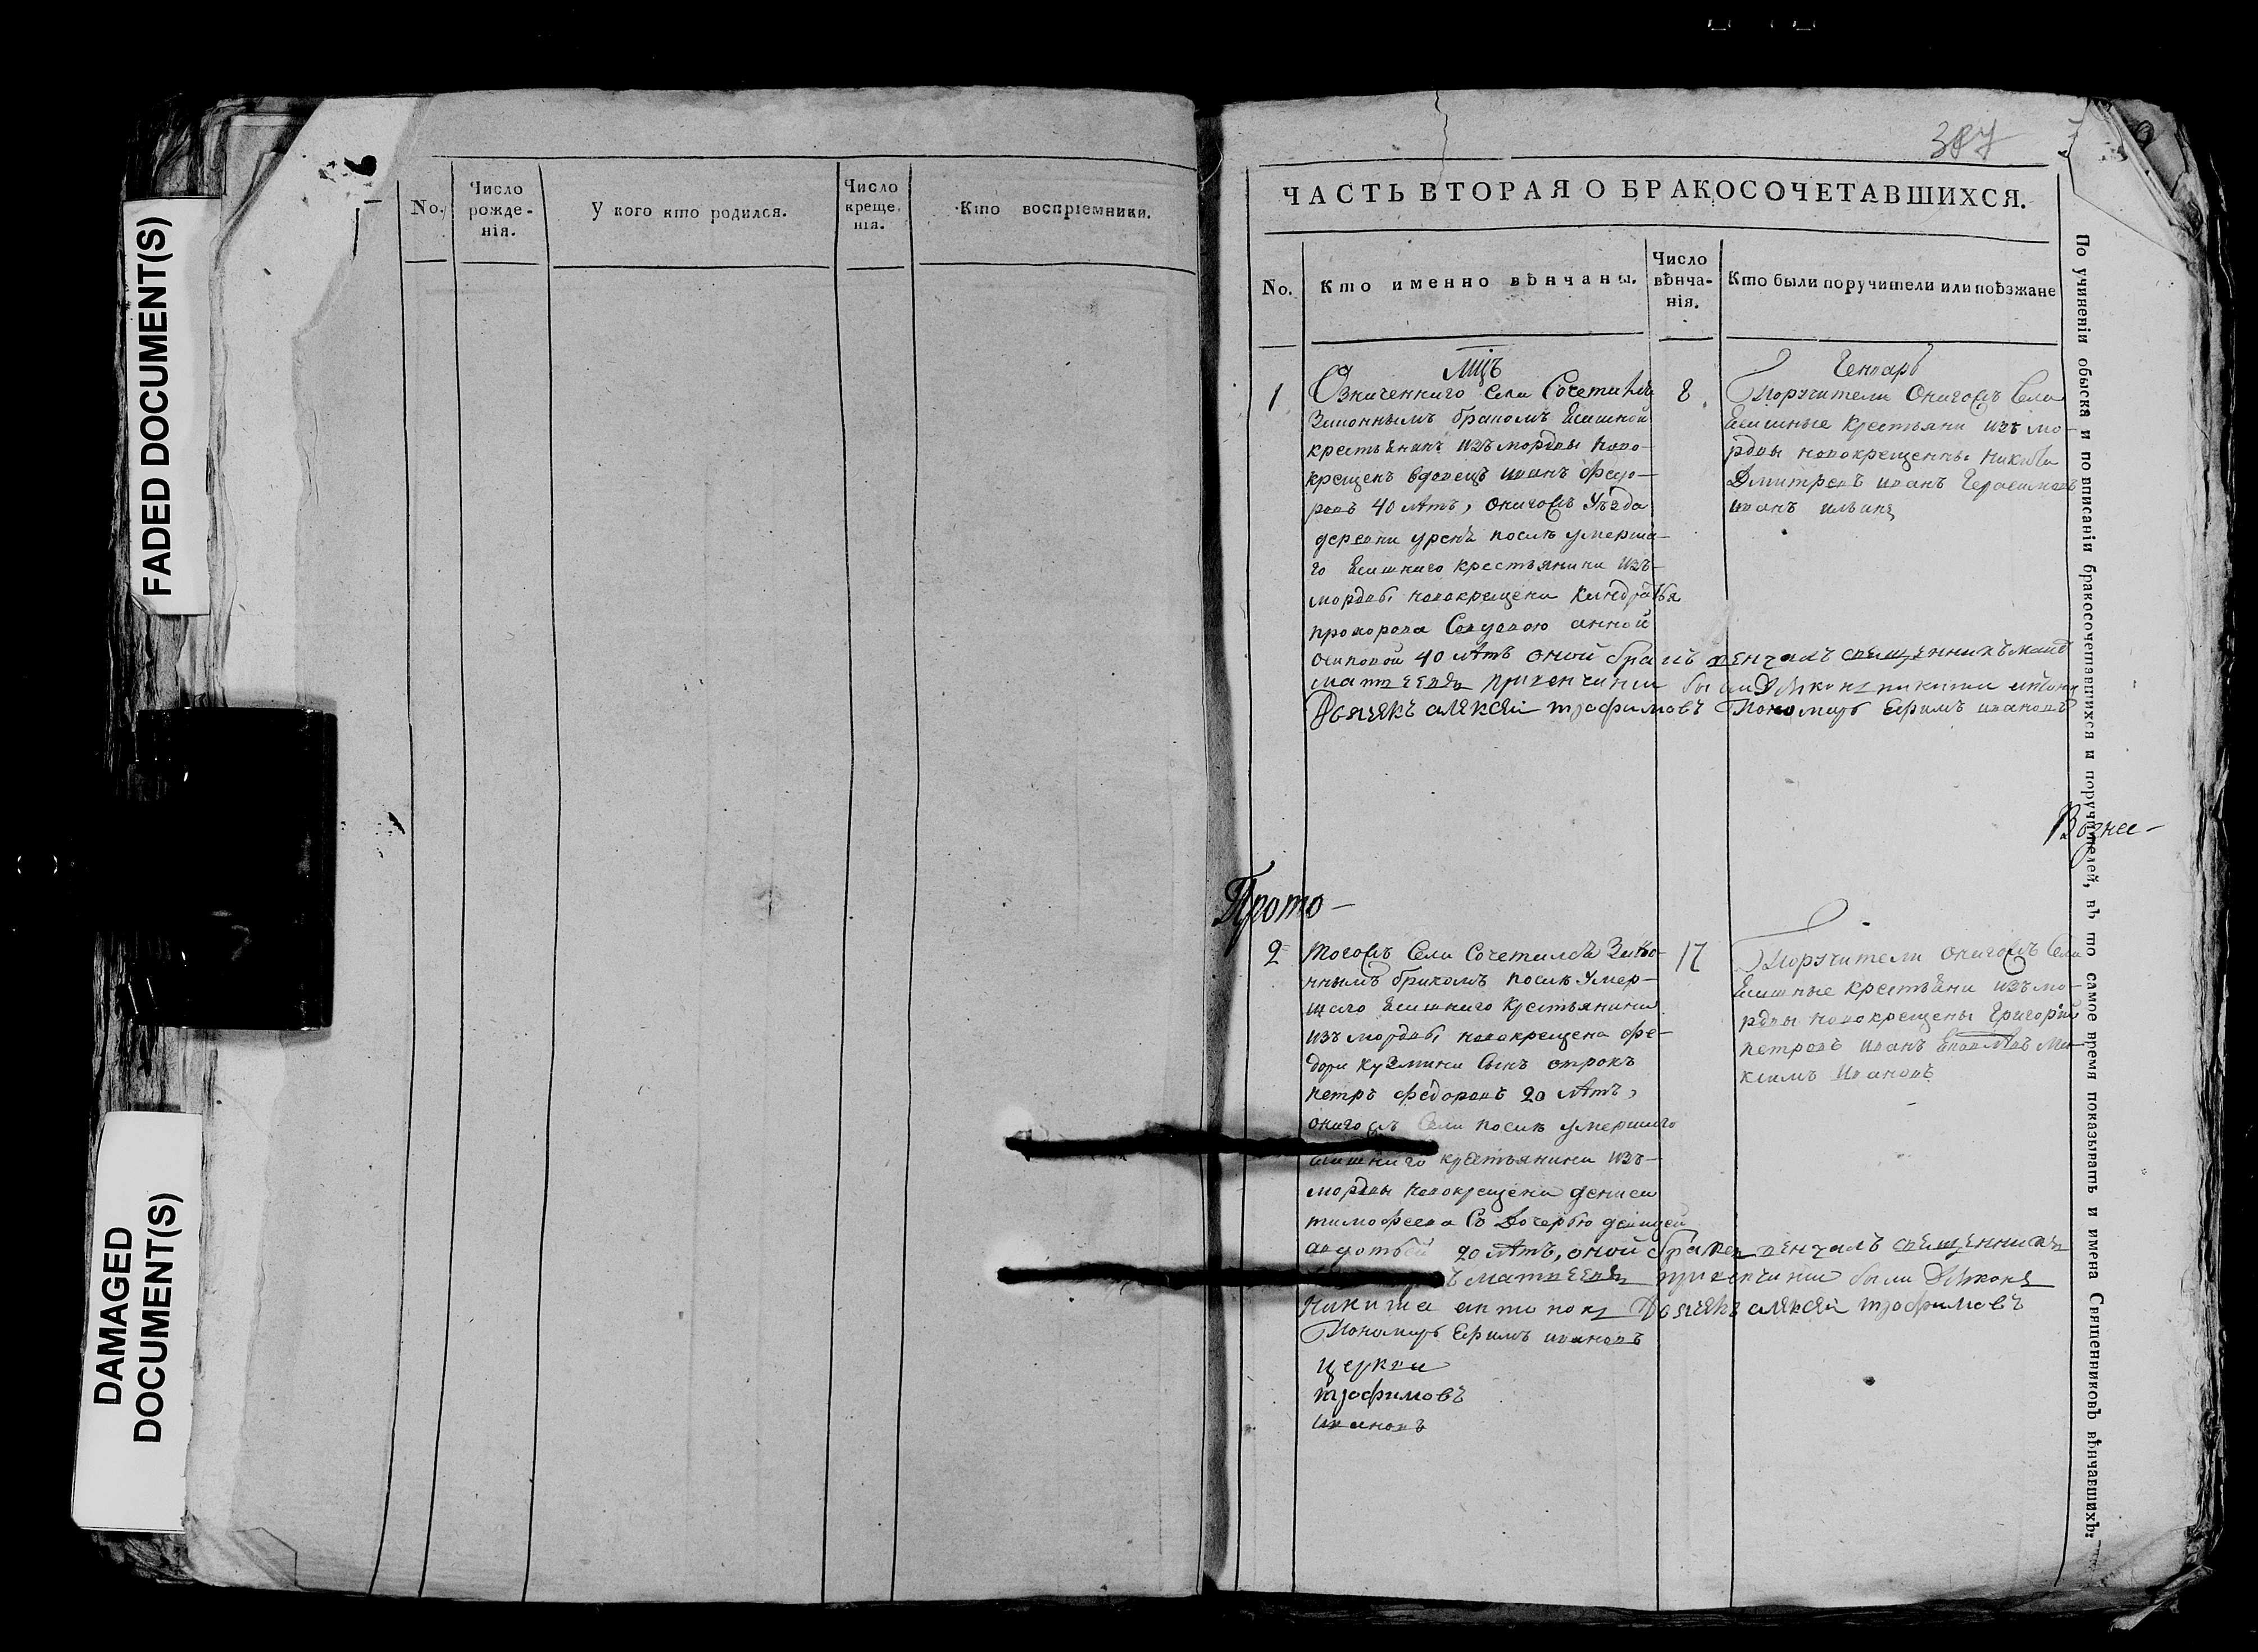 FADED DOCUMENT(S)
DAMAGED
DOCUMENT(S)
No.
Число
рожде-
нія.
У кого кто родился.
Число
креще-
нія.
Кто воспріемники.
387
ЧАСТЬ ВТОРАЯ О БРАКОСОЧЕТАВШИХСЯ.
No.
Кто именно вѣнчаны.
Число
вѣнча-
нія.
Кто были поручители или поѣзжане
мцъ
Генварь
1
Означеннаго села Сочетался
Законнымъ бракомъ Ясашной
крестьянинъ изъ мордвы ново-
крещенъ вдовецъ иванъ федо-
ровъ 40 лѣтъ, онагожъ уѣзда
деревни урень послѣ умерша-
го Ясашнаго крестьянина изъ-
мордвы новокрещена Кандратья
прохорова Совдовою анной
осиповой 40 лѣтъ оной бракъ венчалъ священникъ
матвеевъ привенчании были Дьяконъ никита антоно
Дьячекъ алексей трофимовъ Пономарь Ефимъ ивановъ
8
Поручители Онагожъ Села
Ясашные крестьяни изъ мо-
рдвы новокрещенны никита
Дмитревъ иванъ Герасимовъ
иванъ ильинъ
Возне-
Прото-
2
тогожъ Села Сочетался Зако-
ннымъ бракомъ послѣ умер-
шаго Ясашнаго крестьянина
изъ мордвы новокрещена фе-
дора кузмина Сынъ отрокъ
петръ федоровъ 20 лѣтъ,
онагожъ Села послѣ умершаго
Ясашнаго крестьянина изъ-
мордвы новокрещена дениса
тимофеева Съ Дочерью девицей
авдотьей 20 лѣтъ, оной бракъ венчалъ священникъ
матвеевъ привенчании были Дьяконъ
Никита антоновъ Дьячекъ алексей трофимовъ
Пономарь Ефимъ ивановъ
церкви
трофимовъ
ивановъ
17
Поручители онагожъ Села
Ясашные крестьяни изъ мо-
рдвы новокрещены Григорий
петровъ иванъ Яковлевъ Ма-
ксимъ Ивановъ
По учиненіи обыска и по вписаніи бракосочетавшихся и поручителей, въ то самое время показывать и имена Священниковъ вѣнчавшихъ.